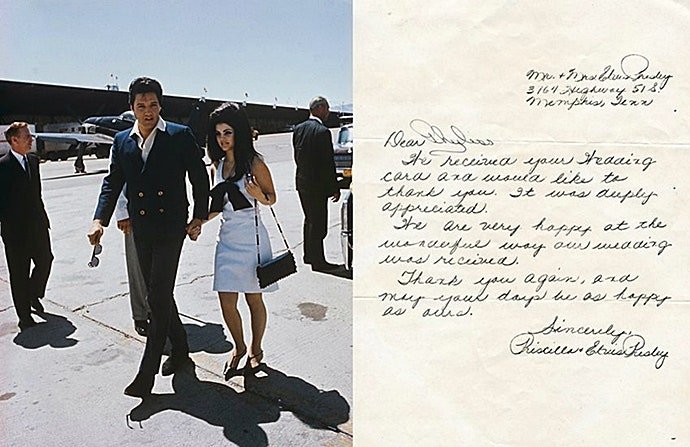 Mr. + Mrs Elvis Presley
3764 Highway 51 S
Memphis, Tenn
Dear Phyliss
We received your Wedding
card and would like to
thank you. It was deeply
appreciated.
We are very happy at the
wonderful way our wedding
was received.
Thank you again, and
may your days be as happy
as ours.
Sincerely,
Priscilla + Elvis Presley